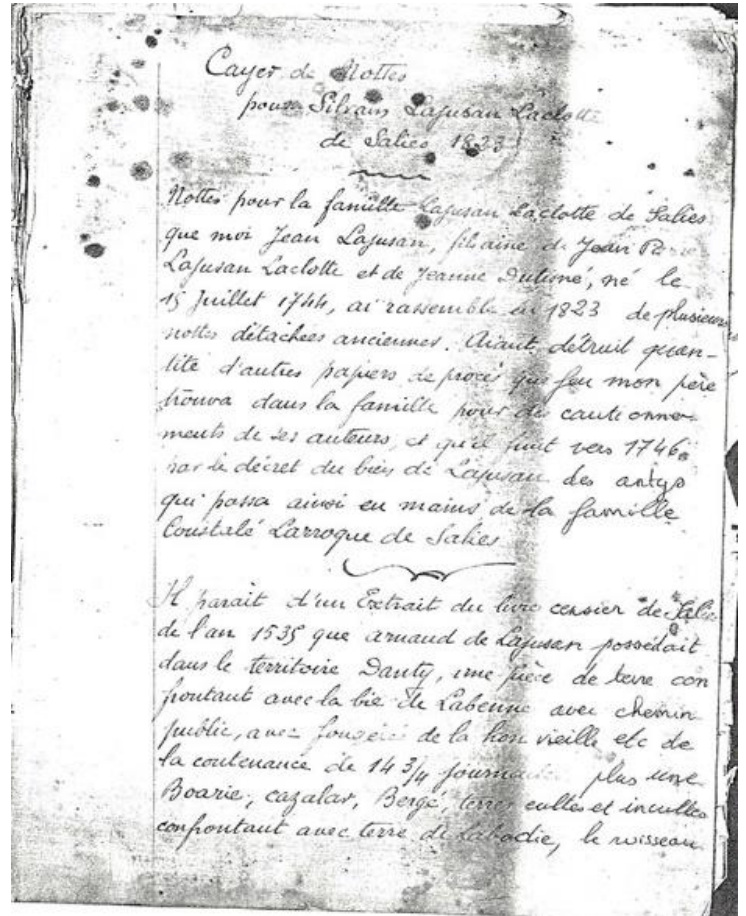 Cayer de Nottes
pour Silvain Lajusan Laclotte
de Salies 1823
Nottes pour la famille Lajusan Laclotte de Salies
que moi Jean Lajusan, fils aine de Jean
Lajusan Laclotte et de Jeanne Dutisné, né le
15 Juillet 1744, ai rassemblé en 1823 de plusieurs
nottes détachées anciennes. Aiant détruit quan-
tité d'autres papiers de procès que feu mon père
trouva dans la famille pour des cautionne-
ments de ses auteurs, et qu'il finit vers 1746
par le décret du bien de Lajusan des antys
qui passa ainsi en mains de la famille
Coustalé Larroque de Salies
Il parait d'un Extrait du livre censier de Salies
de l'an 1535 que arnaud de Lajusan possédait
dans le territoire Danty, une pièce de terre con
frontant avec la bie de Labenne avec chemin
public, avec de la hon vieille etc de
la contenance de 14 3/4 plus une
Boarie, cazalar, Berge, terres cultes et incultes
confrontant avec terre de Labadie, le ruisseau